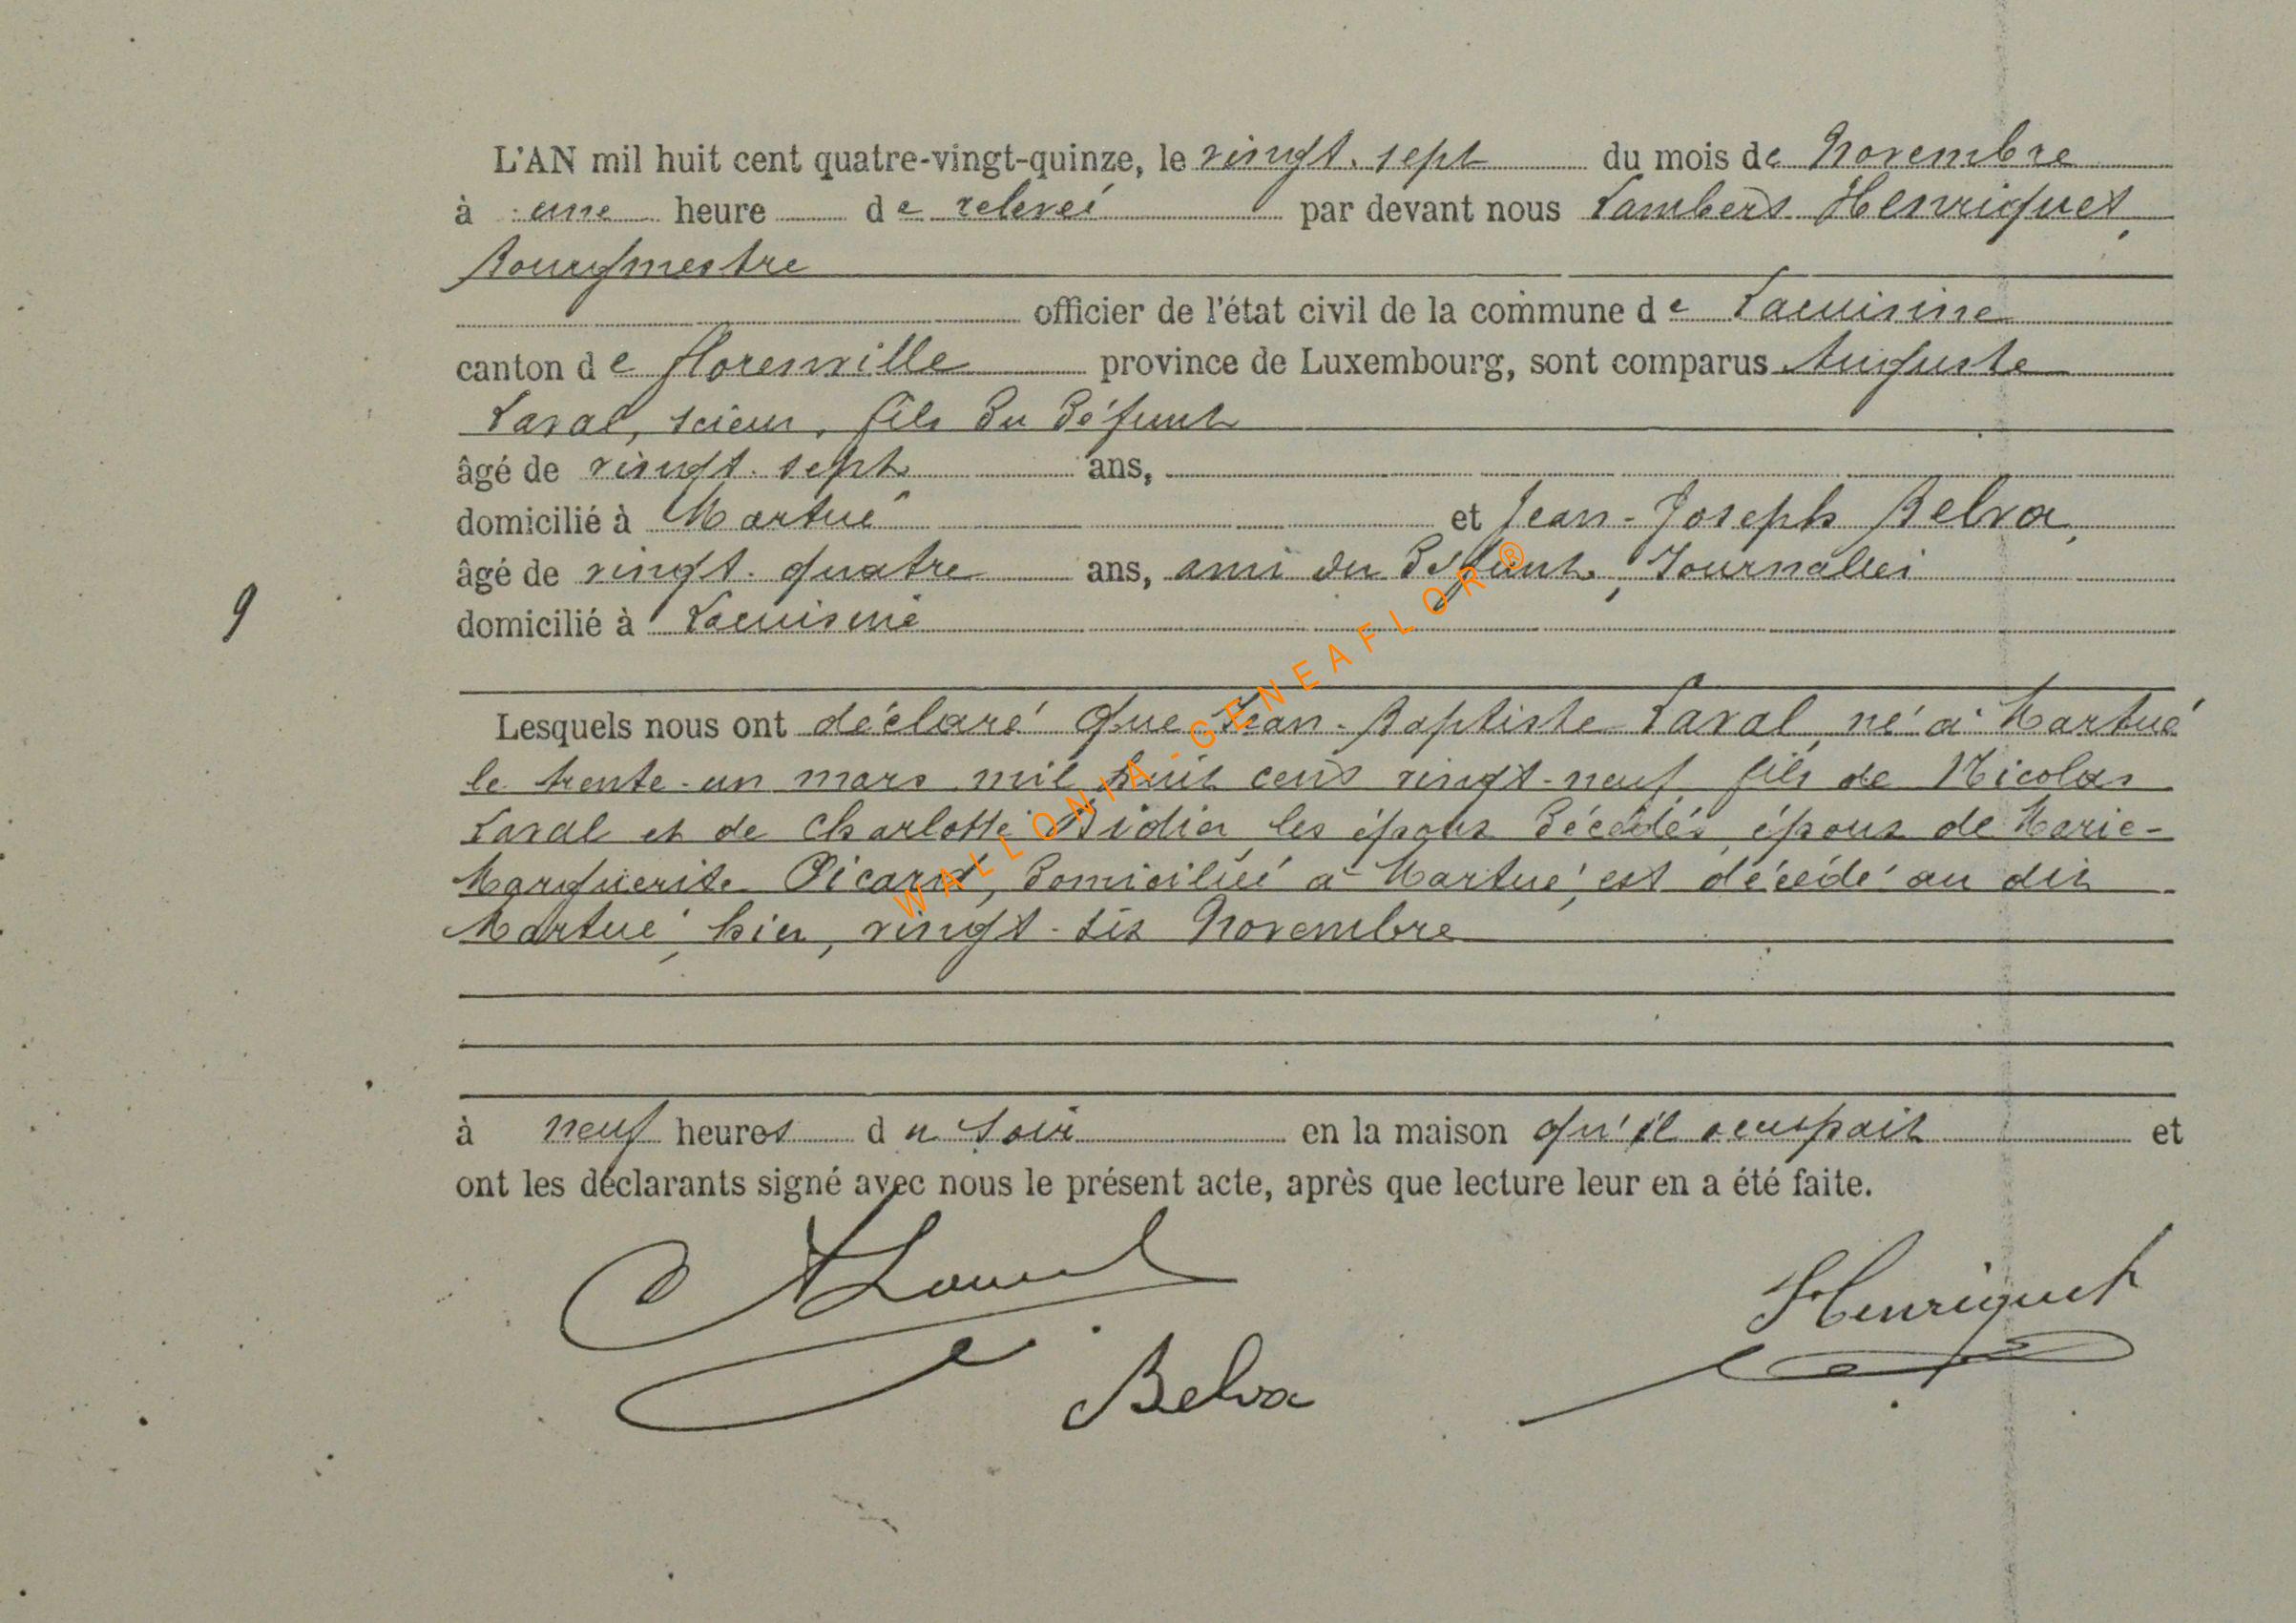 L'AN mil huit cent quatre-vingt-quinze, le vingt-sept du mois de Novembre
à une heure de relevée par devant nous Lambert Henriquet,
Bourgmestre
officier de l'état civil de la commune de Lacuisine
canton de Florenville province de Luxembourg, sont comparus Auguste
Laval, scieur, fils du défunt
âgé de vingt-sept ans,
domicilié à Martué et Jean-Joseph Belva,
âgé de vingt-quatre ans, ami du défunt, Journalier
domicilié à Lacuisine
9
Lesquels nous ont déclaré que Jean-Baptiste Laval, né à Martué
le trente-un mars mil huit cent vingt-neuf, fils de Nicolas
Laval et de Charlotte Didier, les époux décédés, époux de Marie-
Marguerite Picard, domicilié à Martué, est décédé au dit
Martué, hier, vingt-six Novembre
à neuf heures du soir en la maison qu'il occupait et
ont les déclarants signé avec nous le présent acte, après que lecture leur en a été faite.
A Laval
Henriquet
Belva
WALLONIA-GENEAFLOR®